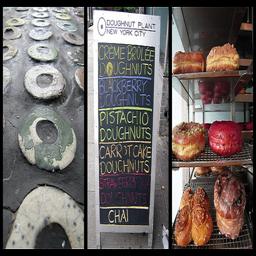 DOUGHNUT PLANT
NEW YORK CITY
CRÈME BRÛLÉE
DOUGHNUTS
BLACKBERRY
DOUGHNUTS
PISTACHIO
DOUGHNUTS
CARROTCAKE
DOUGHNUTS
DOUGHNUTS
CHAI